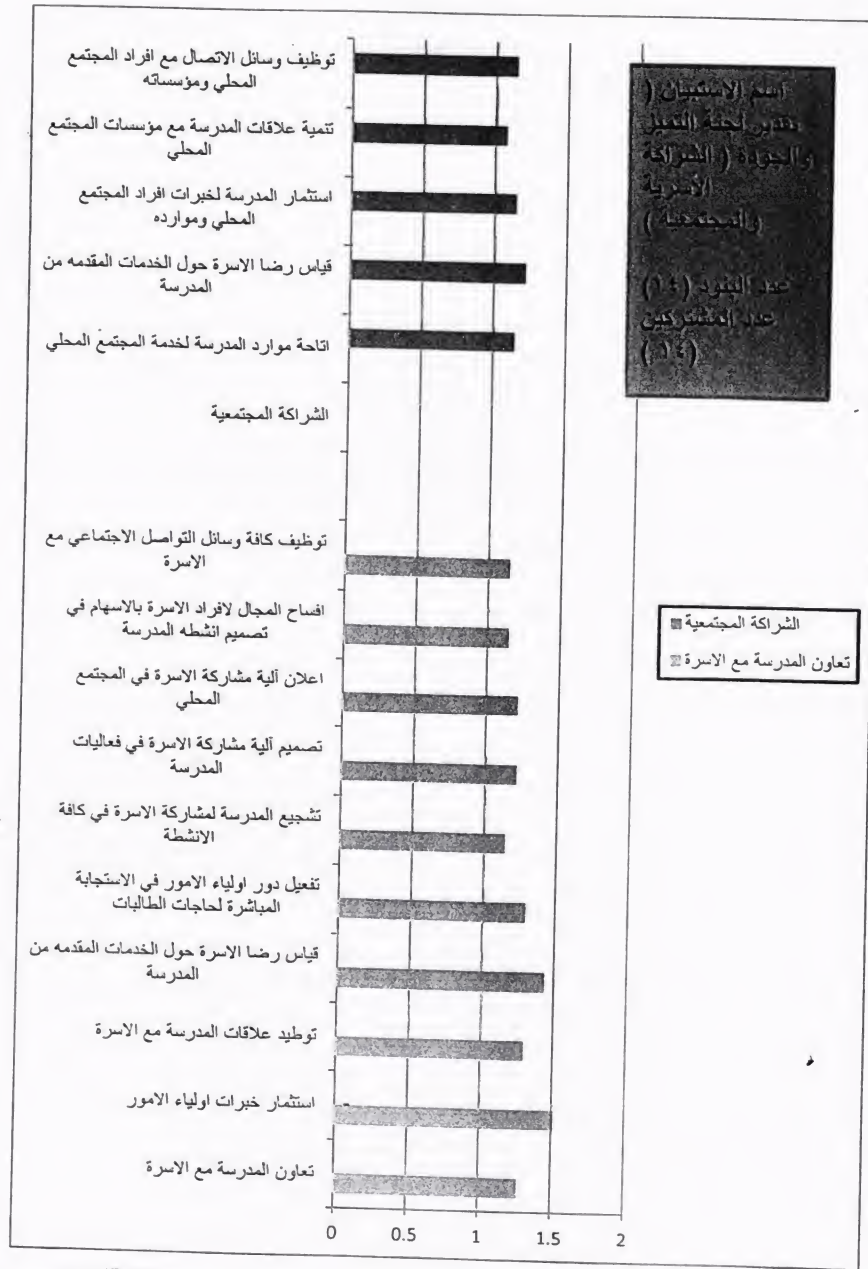 توظيف وسائل الاتصال مع افراد المجتمع
المحلي ومؤسساته
تنمية علاقات المدرسة مع مؤسسات المجتمع
المحلي
استثمار المدرسة لخبرات افراد المجتمع
المحلي وموارده
قياس رضا الاسرة حول الخدمات المقدمه من
المدرسة
اتاحة موارد المدرسة لخدمة المجتمع المحلي
الشراكة المجتمعية
توظيف كافة وسائل التواصل الاجتماعي مع
الاسرة
افساح المجال لافراد الاسرة بالاسهام في
تصميم انشطه المدرسة
اعلان آلية مشاركة الاسرة في المجتمع
المحلي
تصميم آلية مشاركة الاسرة في فعاليات
المدرسة
تشجيع المدرسة لمشاركة الاسرة في كافة
الانشطة
تفعيل دور اولياء الامور في الاستجابة
المباشرة لحاجات الطالبات
قياس رضا الاسرة حول الخدمات المقدمه من
المدرسة
توطيد علاقات المدرسة مع الاسرة
استثمار خبرات اولياء الامور
تعاون المدرسة مع الاسرة
0 0.5 1 1.5 2
اسم الاستبيان (
لجنة التميز
والجودة ( الشراكة
الأسرية
والمجتمعية )
عدد البنود (١٤)
عدد المشتركين
(١٤)
الشراكة المجتمعية
تعاون المدرسة مع الاسرة